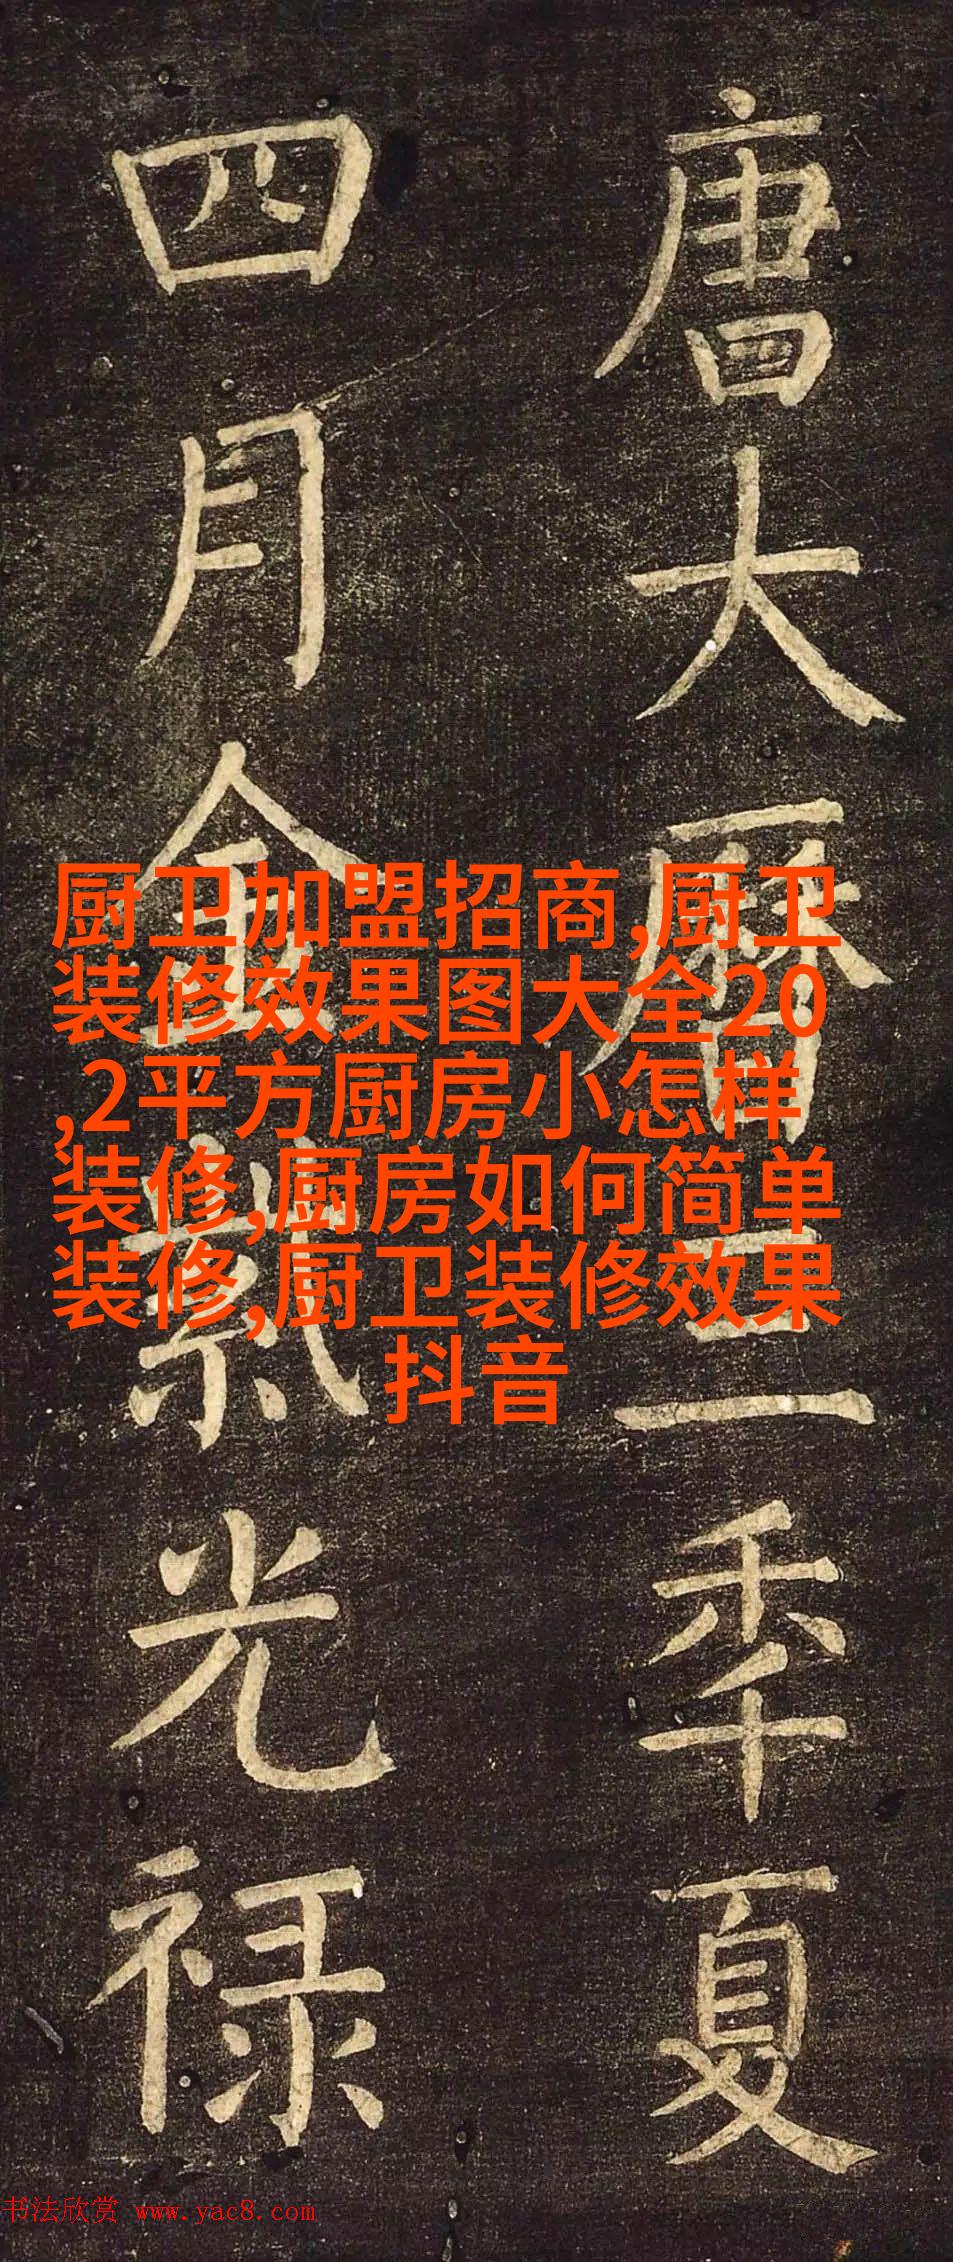 唐大曆三秊夏
四月金紫光禄
厨卫加盟招商,厨卫
装修效果图大全20
,2平方厨房小怎样
装修,厨房如何简单
装修,厨卫装修效果
抖音
书法欣赏 www.yac8.com